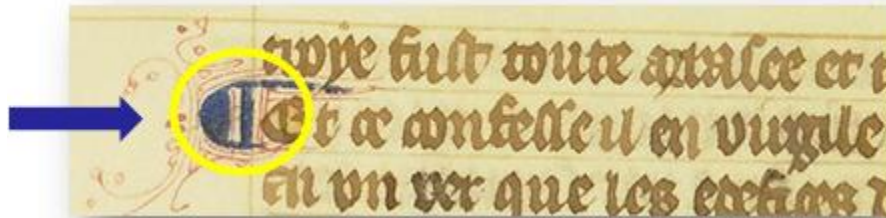 troye fust toute arrasee et
¶ Et ce confesse il en virgile
En vn ver que les edefices